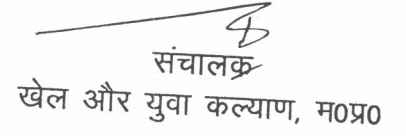 संचालक
खेल और युवा कल्याण, म०प्र०